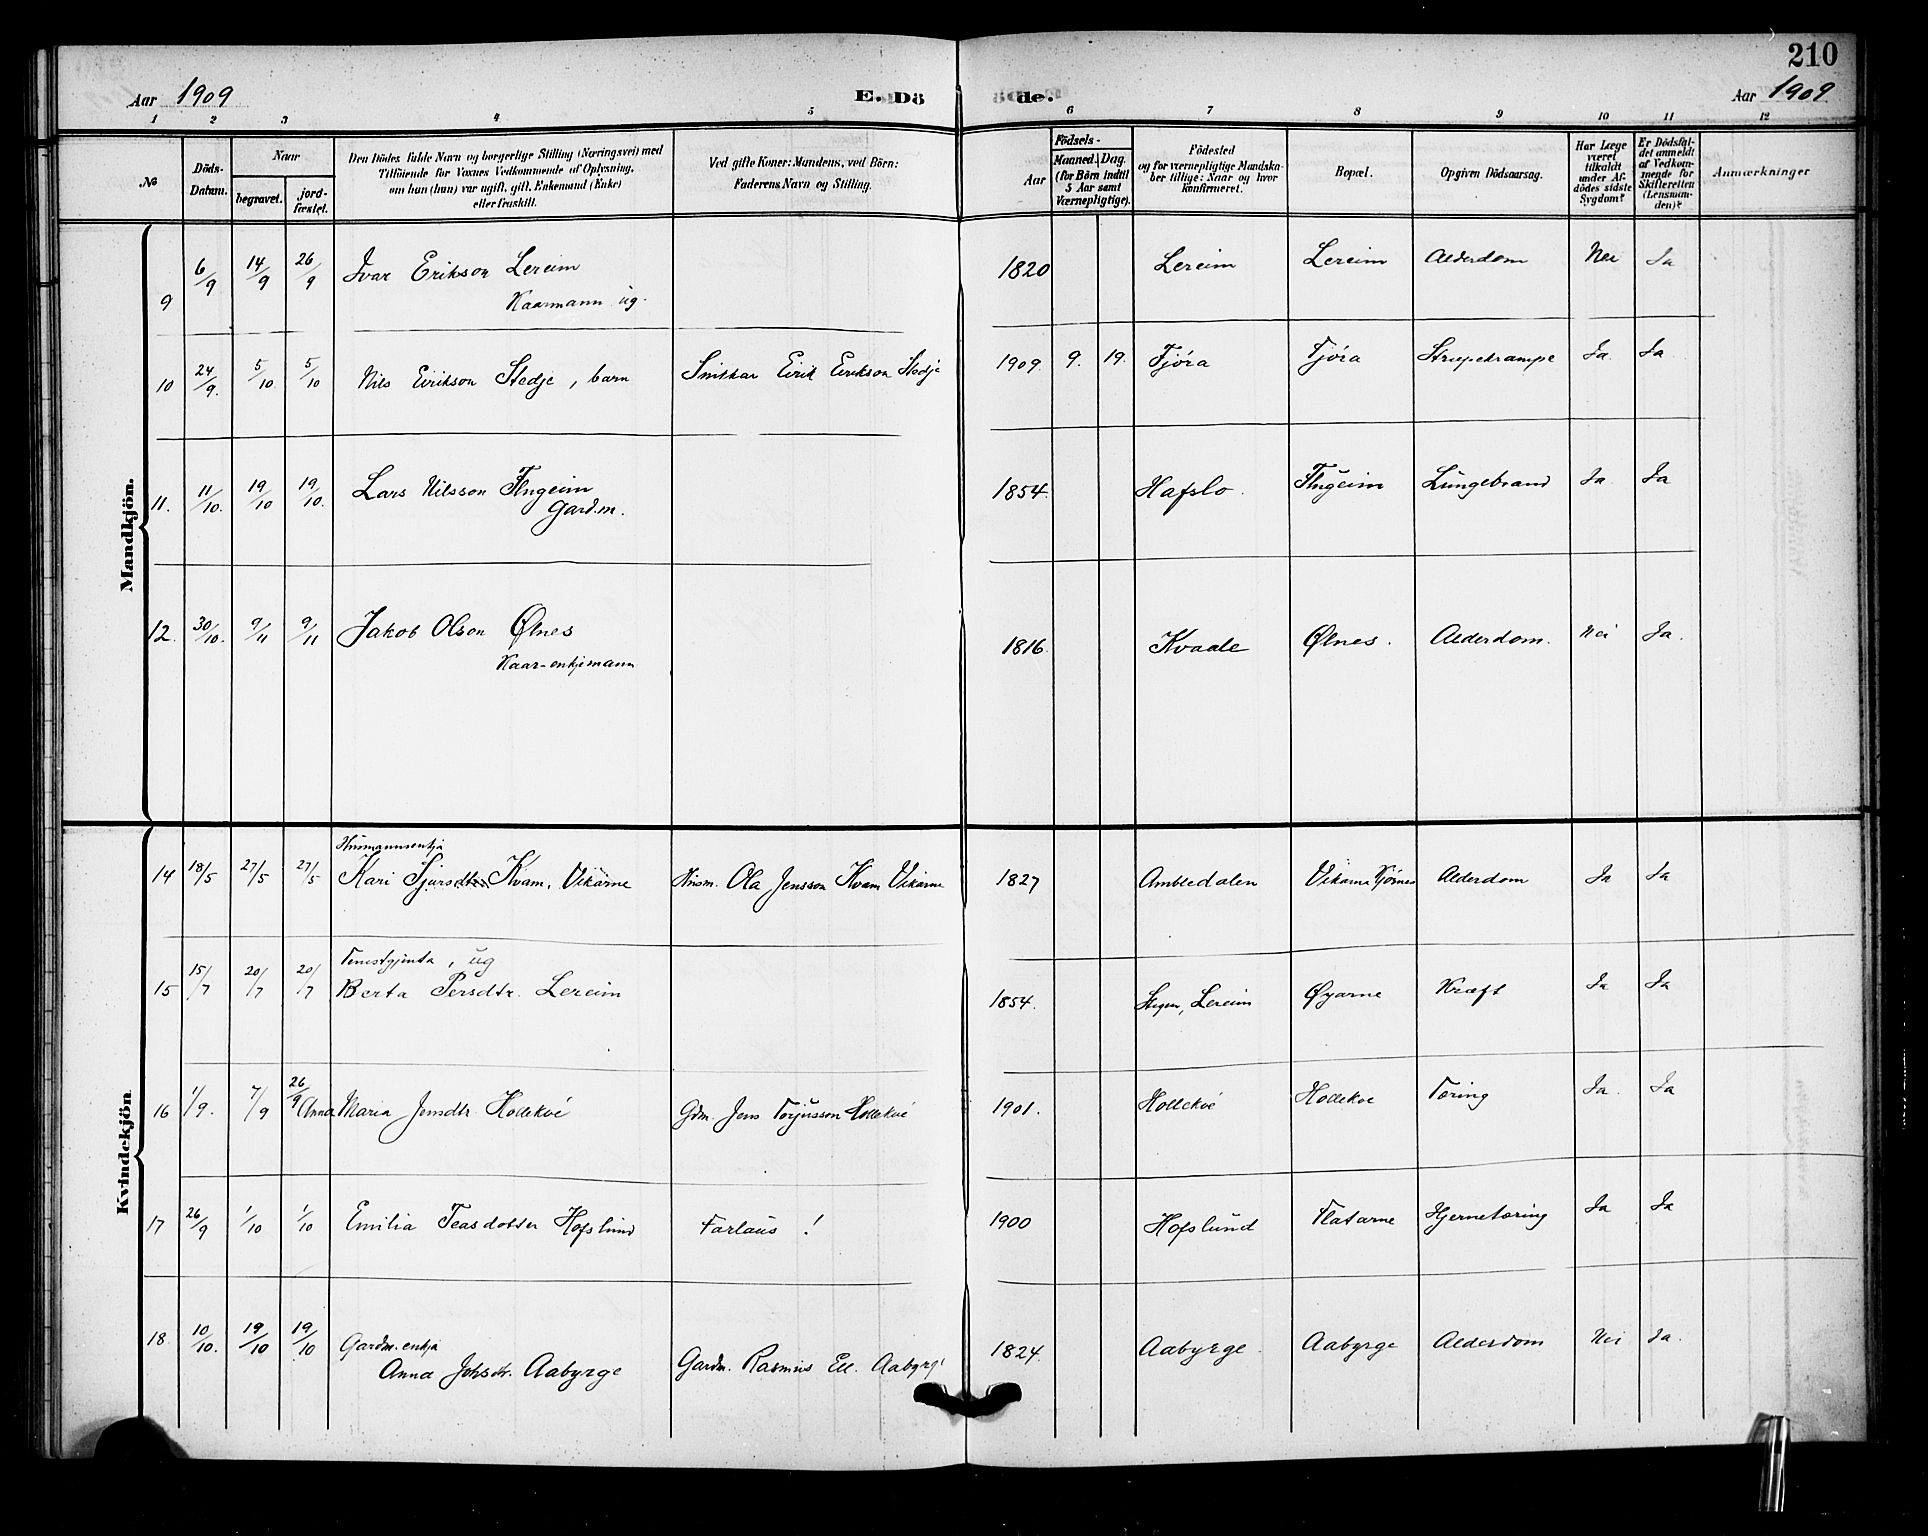 210
Aar 1909 E. Dö de. Aar 1909.
1 2 3 4 5 6 7 8 9 10 11 12
№
Döds-
Datum.
Naar
begravet.
jord-
fæstet.
Den Dödes fulde Navn og borgerlige Stilling (Næringsvei) med
Tilföiende for Voxnes Vedkommende af Oplysning,
om han (hun) var ugift, gift, Enkemand (Enke)
eller fraskilt.
Ved gifte Koner: Mandens, ved Börn:
Faderens Navn og Stilling.
Aar
Födsels-
Maaned. Dag.
(for Börn indtil
5 Aar samt
Værnepligtige).
Födested
og for værnepligtige Mandska-
ber tillige: Naar og hvor
konfirmeret.
Bopæl.
Opgiven Dödsaarsag.
Har Læge
været
tilkaldt
under Af-
dödes sidste
Sygdom?
Er Dödsfal-
det anmeldt
af Vedkom-
mende for
Skifteretten
(Lensman-
den)?
Anmærkninger
Mandkjön.
9 6/9 14/9 26/9 Ivar Erikson Lereim 1820 Lereim Lereim Alderdom Nei Ja
Kaarmann ug.
10 24/9. 5/10. 5/10 Nils Eirikson Stedje, barn Snikkar Eirik Eirikson Stedje 1909. 9. 19. Fjóra Fjóra Strupekrampe Ja. Ja
11. 11/10. 19/10 19/10. Lars Nilsson Flugeim 1854. Hafslo. Flugeim Lungebrand Ja. Ja
Gardm.
12. 30/10. 9/11 9/11 Jakob Olson Ølnes 1816. Kvaale Ølnes. Alderdom. Nei Ja.
Kaar-enkjemann
Kvindekjön
Husmannsenkja
14 18/5 27/5 27/5 Kari Sjursdtr. Kvam, Vikarne Husm. Ola Jensson Kvam Vikarne 1827 Ambledalen Vikarne Kjørnes Alderdom Ja Ja
Tenestgjenta, ug
15 15/7 20/7 20/7 Berta Persdtr. Lereim 1854. Stigen, Lereim Øyarne Kræft Ja Ja
16 1/9. 7/9 26/9 Anna Maria Jensdtr. Hollekvé Gdm. Jens Torjusson Hollekvé 1901. Hollekvé Hollekve Tæring Ja. Ja
17 26/9 1/10 1/10 Emilia Teasdotter Hofslund Farlaus! 1900 Hofslund Flatarne Hjernetæring Ja Ja
18. 10/10. 19/10 19/10 Gardm. enkja
Anna Johsdtr. Aabyrge Gardm. Rasmus Ell. Aabyrge 1824. Aabyrge. Aabyrge Alderdom Nei Ja.